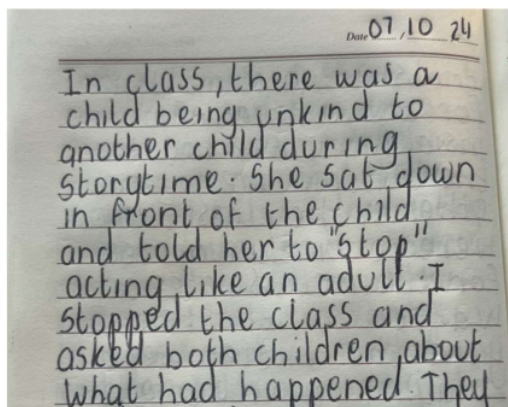 Date 07, 10 24
In class, there was a
child being unkind to
another child during
storytime. She sat down
in front of the child
and told her to "stop"
acting like an adult. I
stopped the class and
asked both children about
what had happened. They